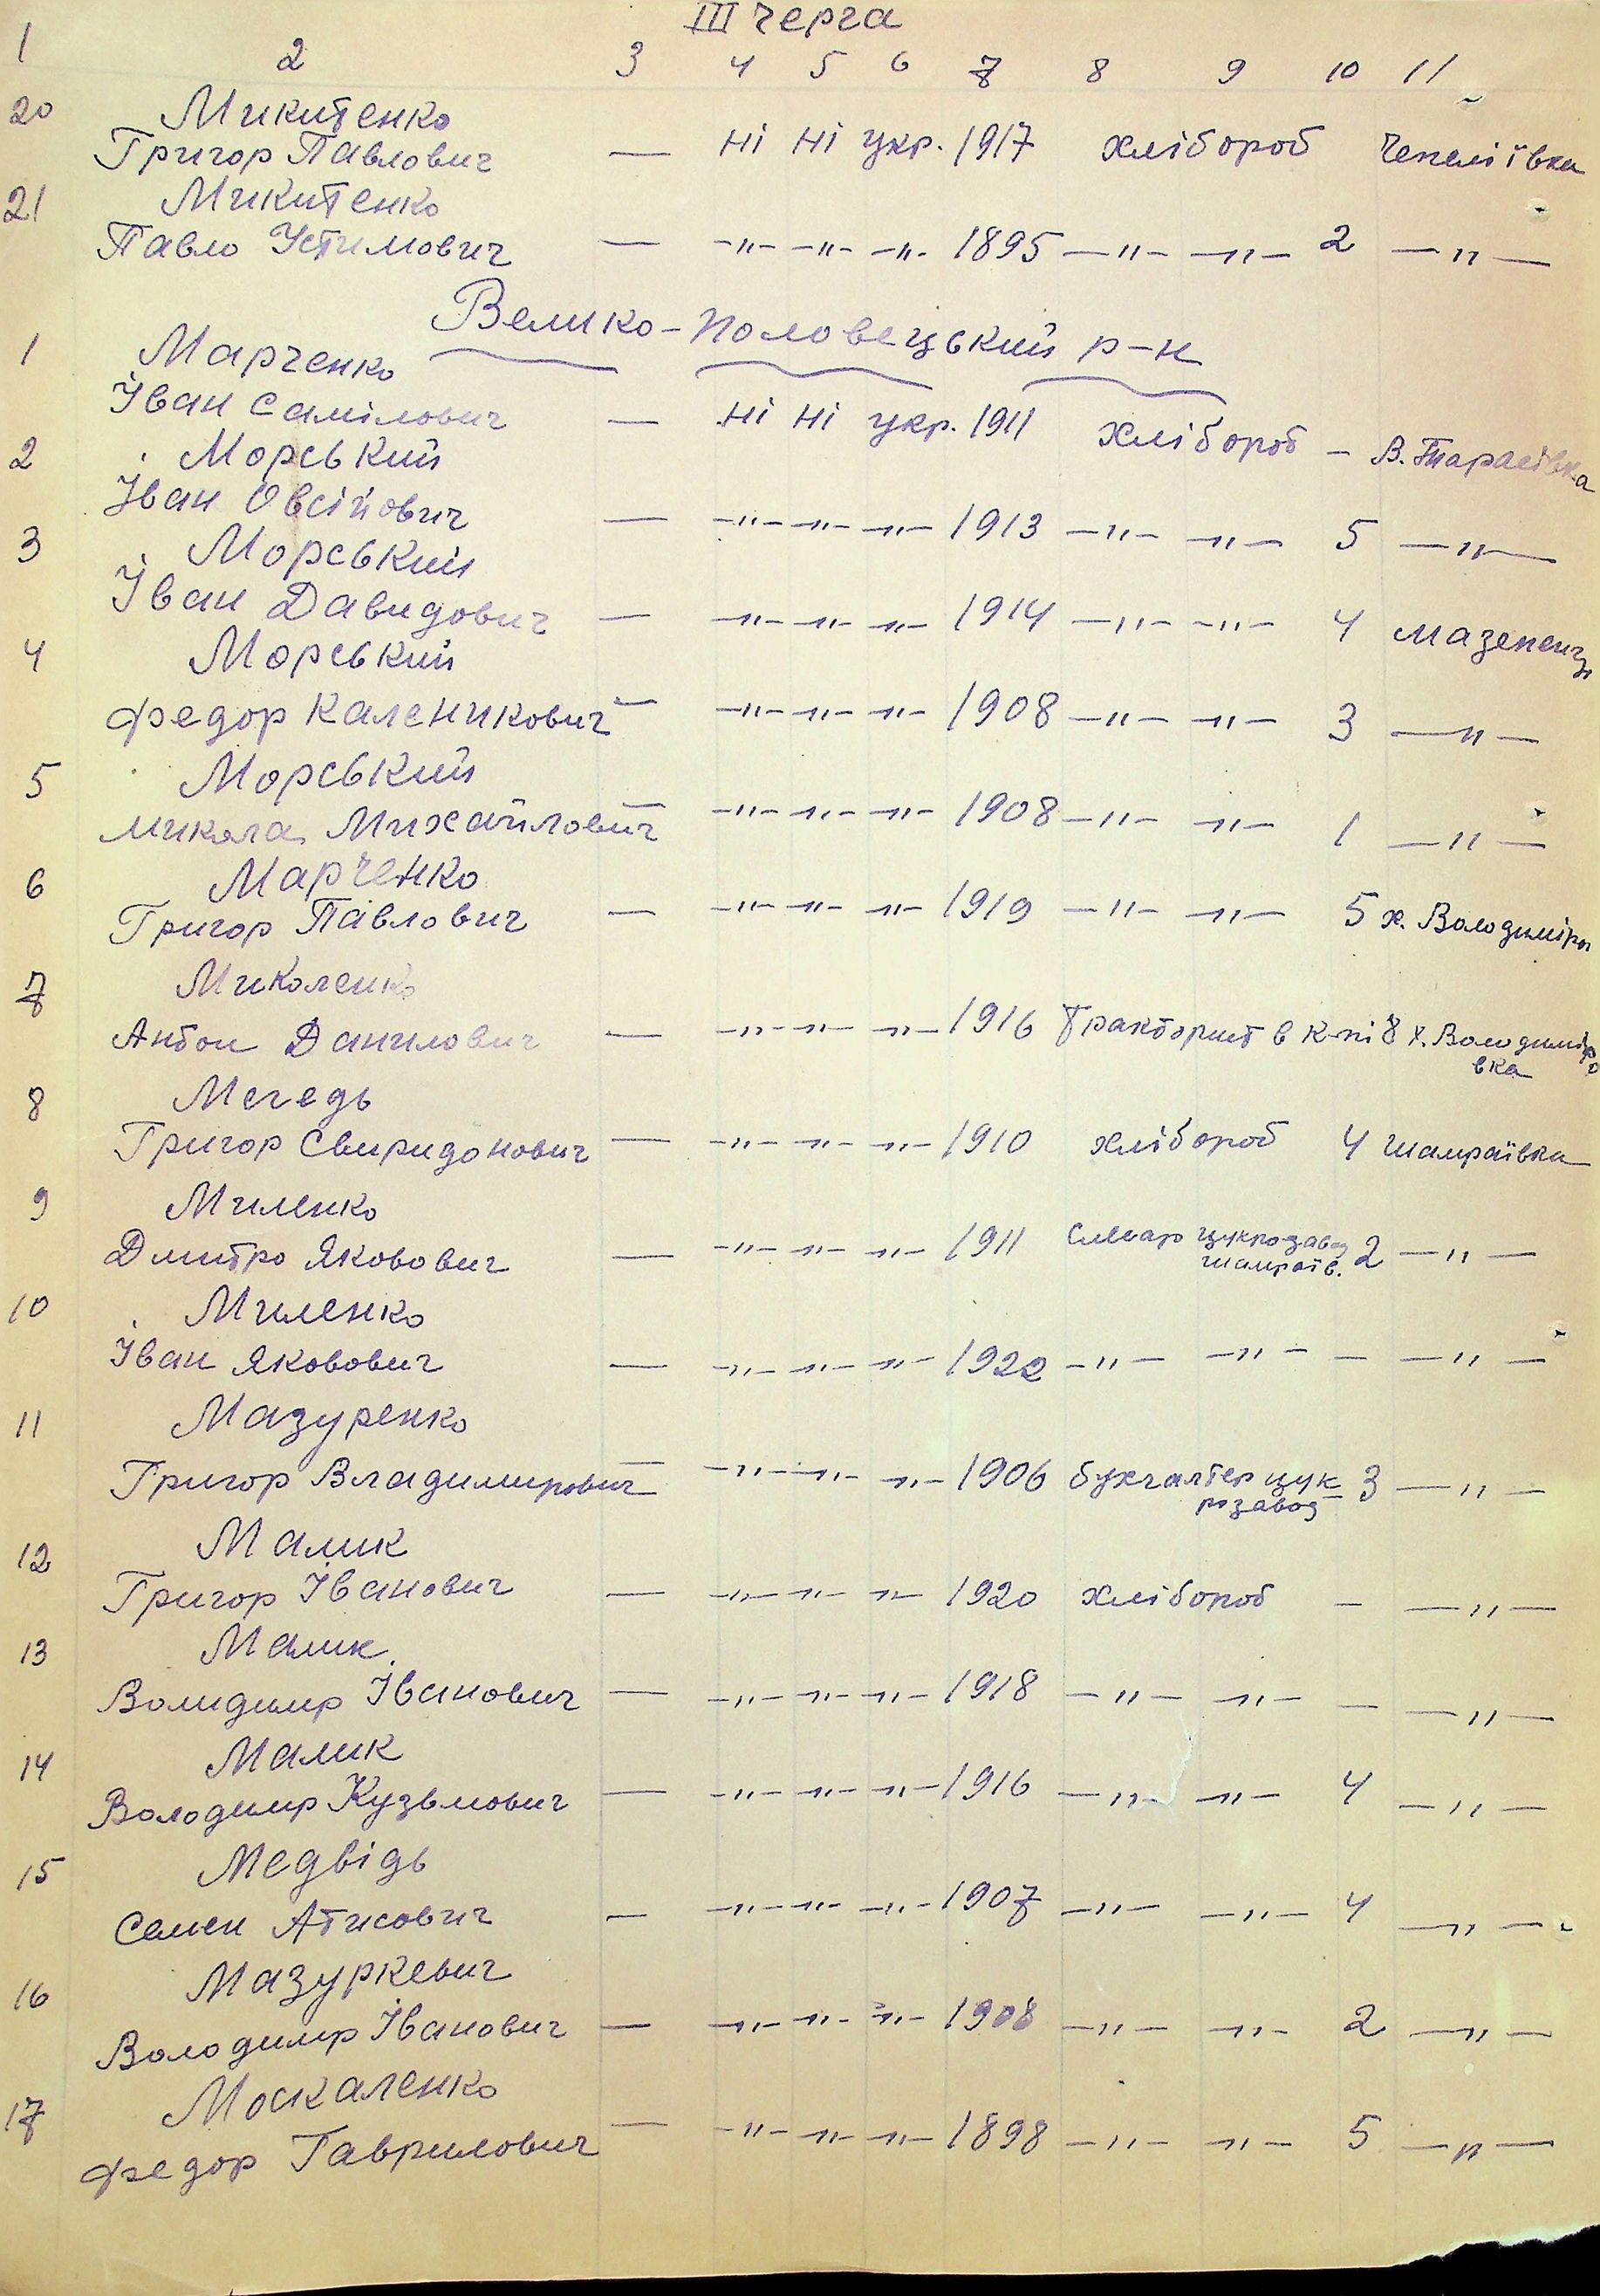 III черга
1 2 3 4 5 6 7 8 9 10 11
20 Микитенко
Григор Павлович — ні ні укр. 1917 хлібороб Чепеліївка
21 Микитенко
Павло Устимович — -"- -"- -"- 1895 -"- -"- 2 -"-
Велико-Половецький р-н
1 Марченко
Іван Самілович — ні ні укр. 1911 хлібороб - В. Тарасівка
2 Морський
Іван Овсійович — -"- -"- -"- 1913 -"- -"- 5 -"-
3 Морський
Іван Давидович — -"- -"- -"- 1914 -"- -"- 4 Мазепенці
4 Морський
Федор Каленикович — -"- -"- -"- 1908 -"- -"- 3 -"-
5 Морський
Микола Михайлович — -"- -"- -"- 1908 -"- -"- 1 -"-
6 Марченко
Григор Павлович — -"- -"- -"- 1919 -"- -"- 5 х. Володиміры
7 Миколенко
Антон Данилович — -"- -"- -"- 1916 Тракторист в к-пі 8 х. Володиміро
вка
8 Мегедь
Григор Свиридонович — -"- -"- -"- 1910 хлібороб 4 Шамраївка
9 Миленко
Дмитро Якович — -"- -"- -"- 1911 Слесар цукрозавод 2 -"-
шамраїв.
10 Миленко
Іван Якович — -"- -"- -"- 1922 -"- -"- - -"-
11 Мазуренко
Григор Владимирович — -"- -"- -"- 1906 бухгалтер цук 3 -"-
розавод
12 Малик
Григор Іванович — -"- -"- -"- 1920 хлібороб - -"-
13 Малик
Волидимир Іванович — -"- -"- -"- 1918 -"- -"- - -"-
14 Малик
Володимир Кузьмович — -"- -"- -"- 1916 -"- -"- 4 -"-
15 Медвідь
Семен — -"- -"- -"- 1907 -"- -"- 4 -"-
16 Мазуркевич
Володимир Іванович — -"- -"- -"- 1908 -"- -"- 2 -"-
17 Москаленко
Федор Гаврилович — -"- -"- -"- 1898 -"- -"- 5 -"-